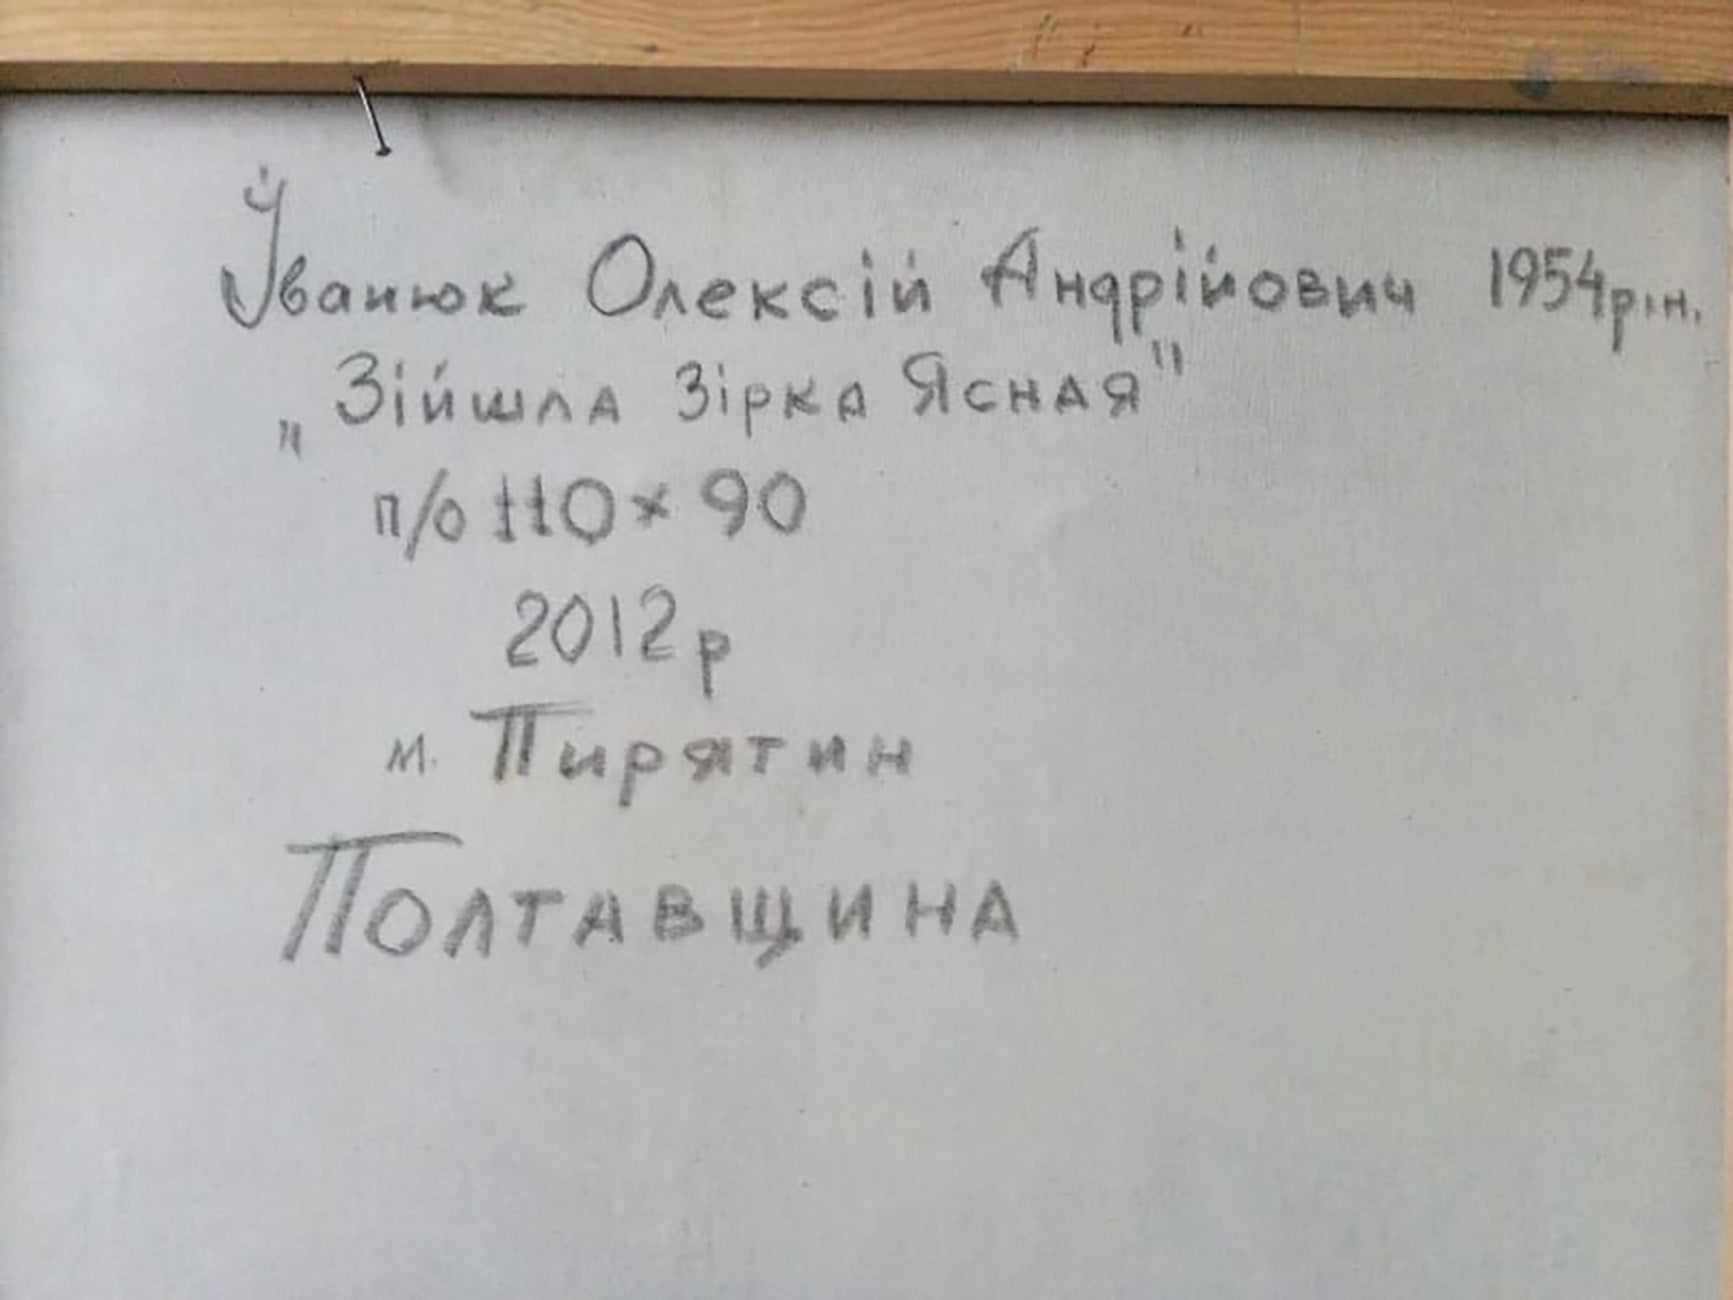 Іванюк Олексій Андрійович 1954р.н.
„Зійшла Зірка Ясная"
п/о 110 × 90
2012р
м. Пирятин
Полтавщина